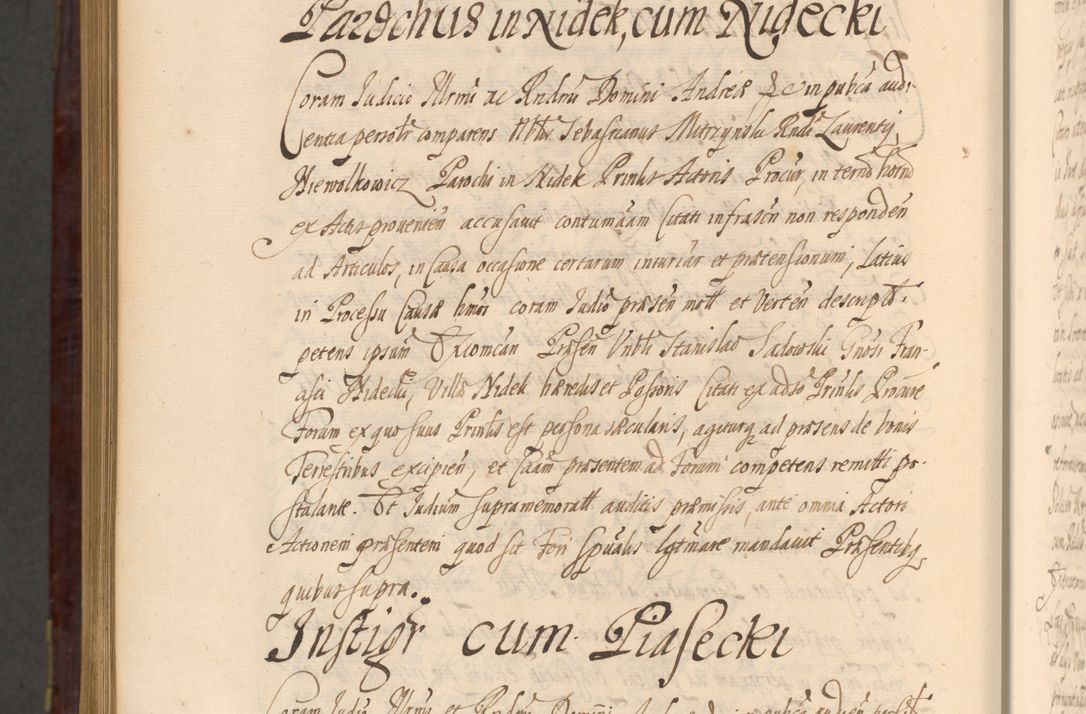 Parochus in Nidek, cum Nidecki
Coram Iudicio Illrmi ac Rndmi Domini Andreæ &c in pubca audi-
entia personlr comparens Nblis Sebastianus Matrzynski Rndi Laurentij
Niewolkowicz Parochi in Nidek Prinlis Actoris Procur, in termo horno
ex Actis provenien accusavit contumaam Citati infrascn non responden
ad Articulos, in Causa occasione certarum iniuriar et prætensionum, Latius
in Processu Causæ hmoi coram Iudio præsen mott et verten descriptt.
petens ipsum Excomcari Præsen Nbli Stanislao Sadowski Gnosi Fran-
cisci Nidecki, Villæ Nidek hæredis et Possoris Citati ex adso Prinlis Procure
Forum ex quo suus Prinlis est persona sæcularis, agiturq ad præsens de bonis
Terrestribus excipien, et Caam præsentem ad Forum competens remitti po-
stulante. Et Iudium supramemoratt auditis præmissis, ante omnia Actori
Actionem præsentem quod sit Fori Spualis lgtmare mandavit Præsentibq
quibus supra.
Instigr cum Piasecki
Coram Iudio Illrmi et Rndmi Domini And